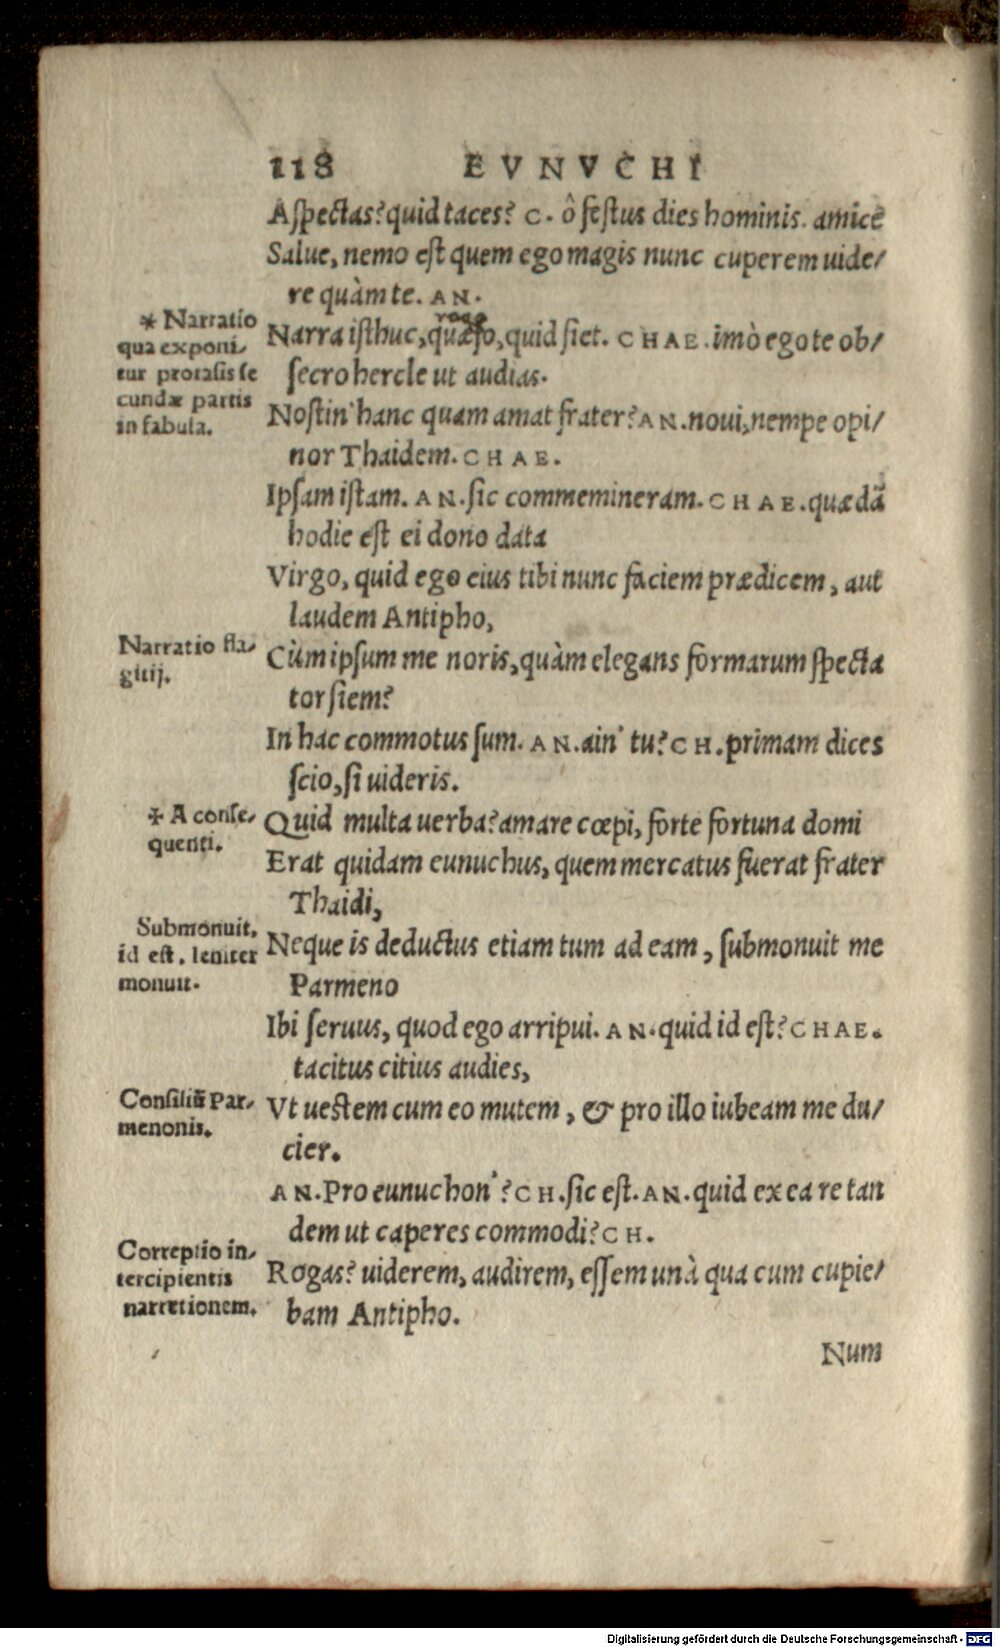 118 EVNVCHI
Aspectas? quid taces? C. ô festus dies hominis. amice
Salue, nemo est quem ego magis nunc cuperem uide/
re quàm te. AN.
* Narratio
qua exponi/
tur protasis se
cundæ partis
in fabula.
rogo
Narra isthuc, quæso, quid siet. CHAE. imò ego te ob/
secro hercle ut audias.
Nostin' hanc quam amat frater? AN. noui, nempe opi/
nor Thaidem. CHAE.
Ipsam istam. AN. sic commemineram. CHAE. quædã
hodie est ei dono data
Virgo, quid ego eius tibi nunc faciem prædicem, aut
laudem Antipho,
Narratio fla/
gitij.
Cùm ipsum me noris, quàm elegans formarum specta
tor siem?
In hac commotus sum. AN. ain' tu? CH. primam dices
scio, si uideris.
✠ A conse/
quenti.
Quid multa uerba? amare cœpi, forte fortuna domi
Erat quidam eunuchus, quem mercatus fuerat frater
Thaidi,
Submonuit.
id est, leniter
monuit.
Neque is deductus etiam tum ad eam, submonuit me
Parmeno
Ibi seruus, quod ego arripui. AN. quid id est? CHAE.
tacitus citius audies,
Consiliũ Par/
menonis.
Vt uestem cum eo mutem, & pro illo iubeam me du/
cier.
AN. Pro eunuchon'? CH. sic est. AN. quid ex ea re tan
dem ut caperes commodi? CH.
Correptio in/
tercipientis
narrationem.
Rogas? uiderem, audirem, essem unà qua cum cupie/
bam Antipho.
Num
Digitalisierung gefördert durch die Deutsche Forschungsgemeinschaft - DFG